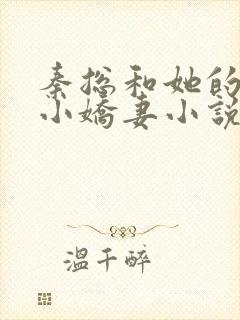 秦总和她的
小嬌妻小說
溫千醉